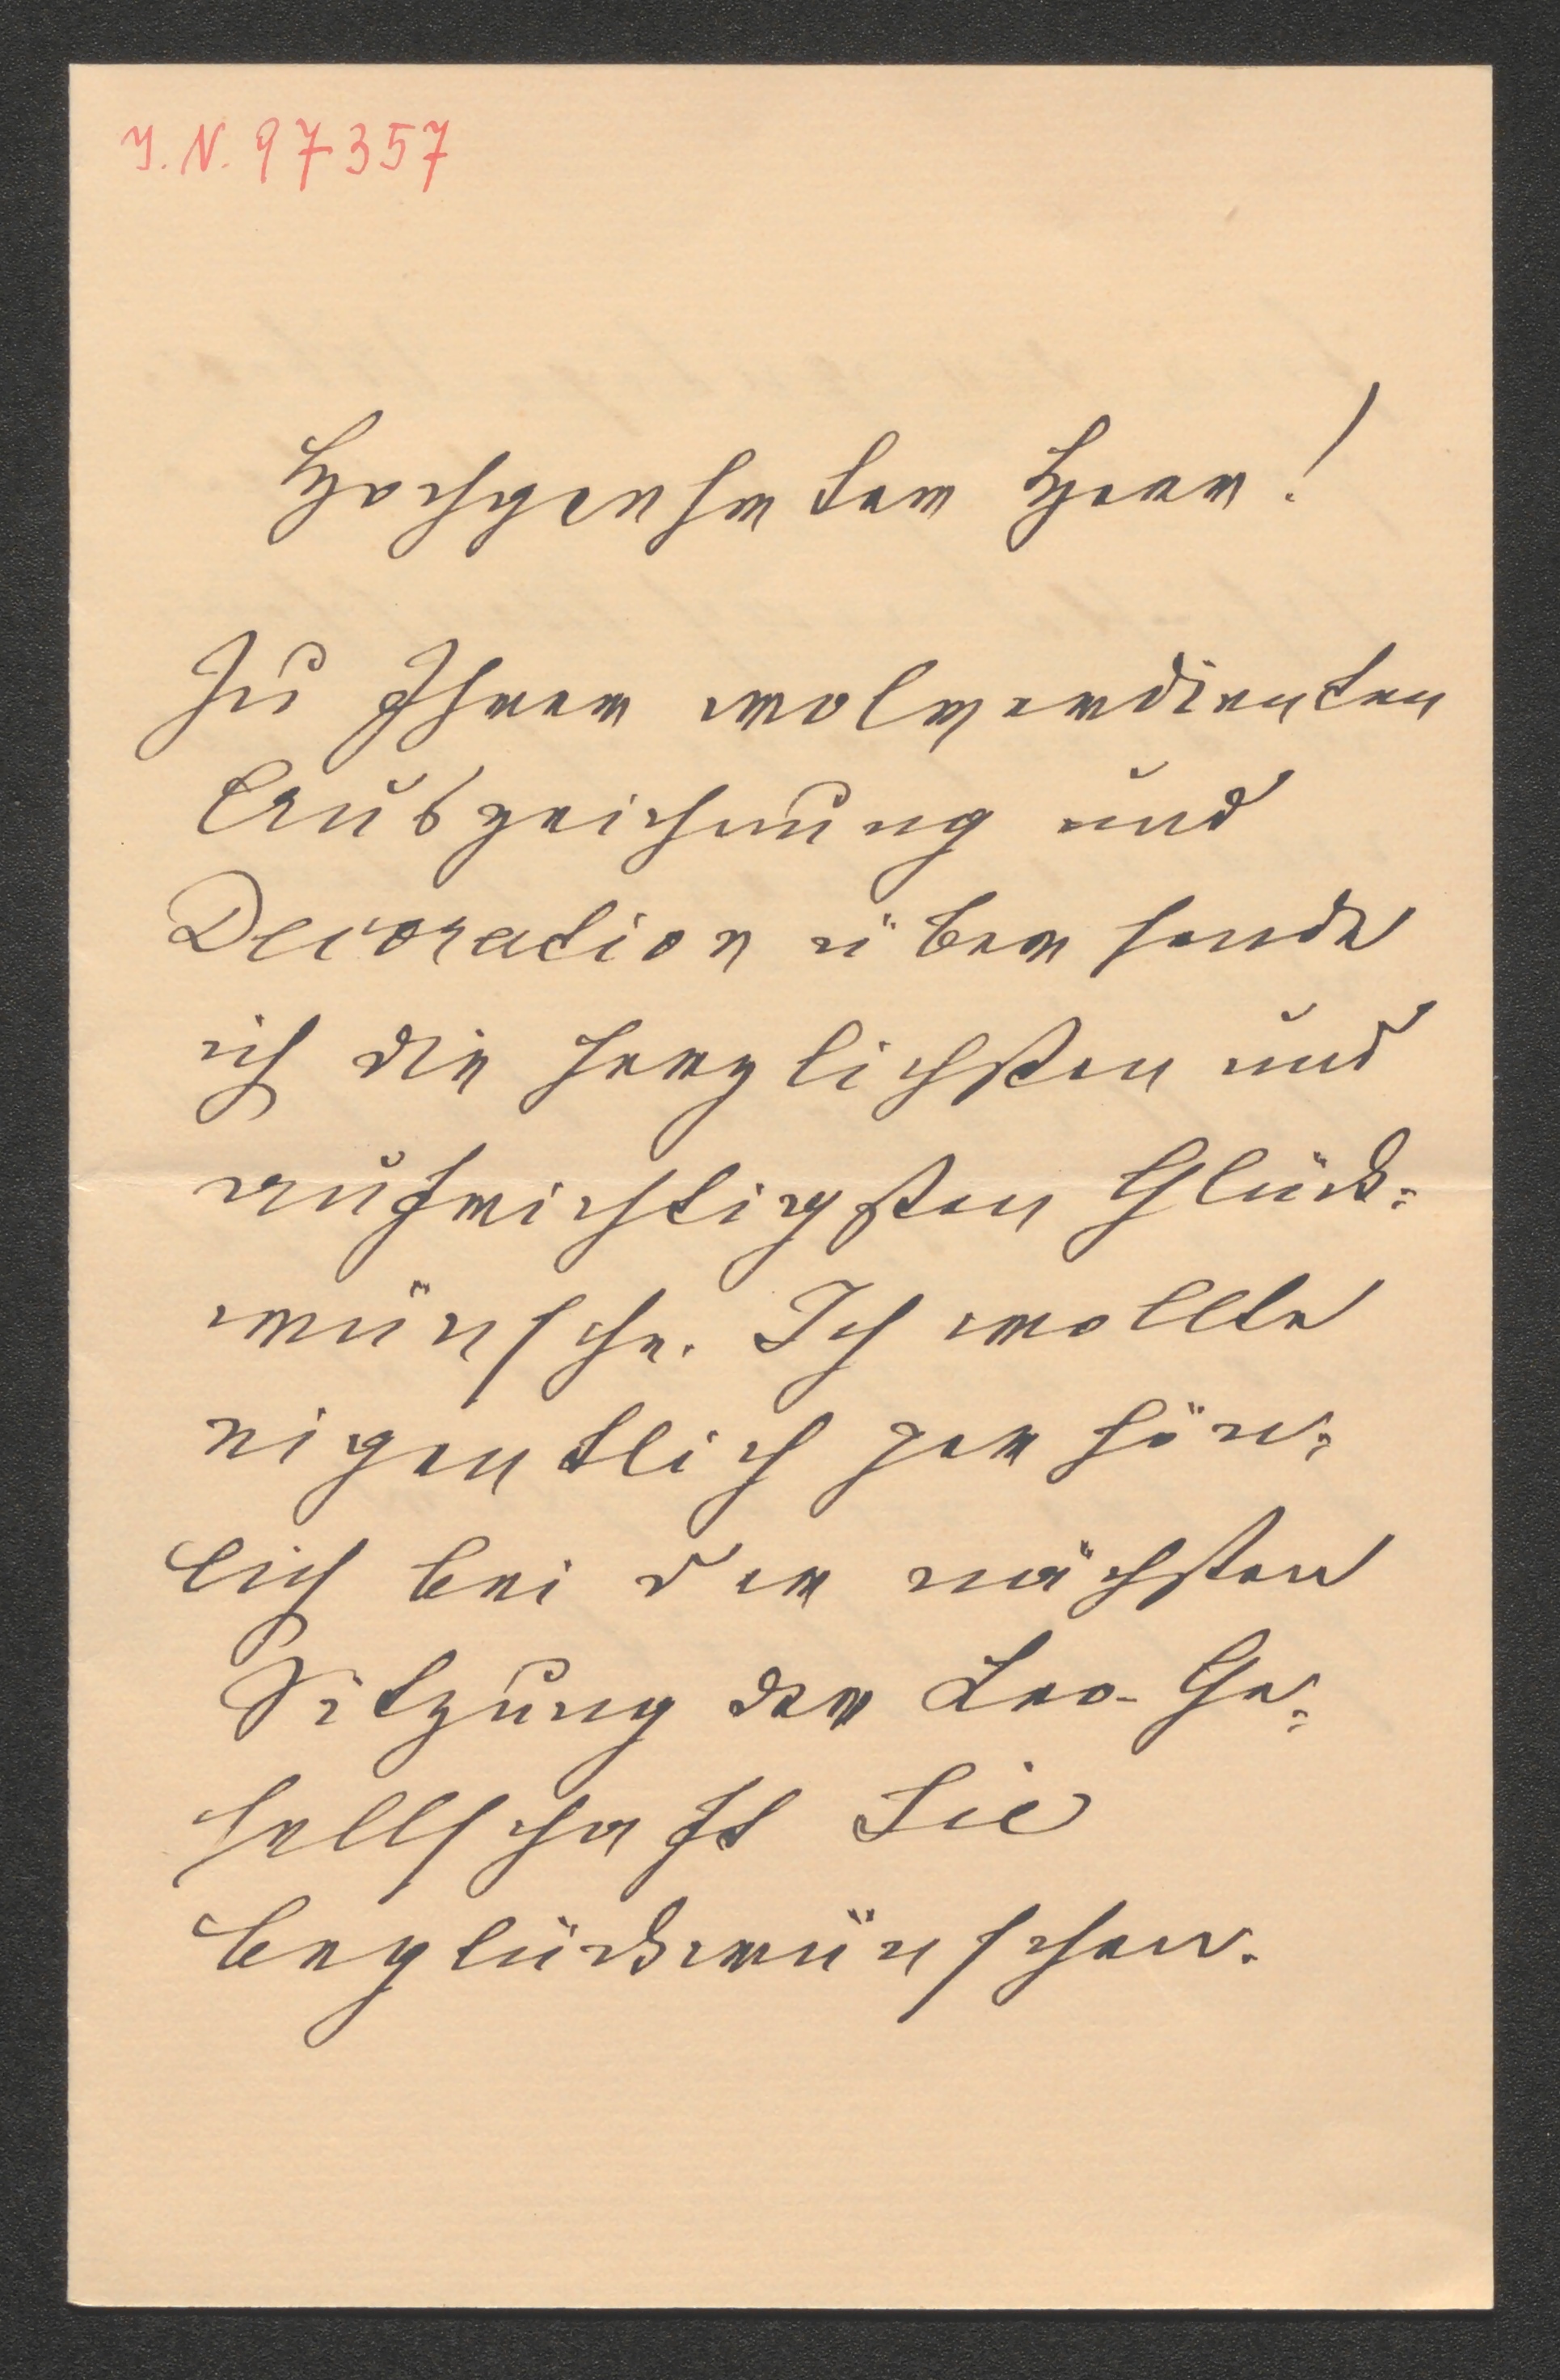 I. N. 97357
Hochgeehrter Herr!
Zu Ihrer wolverdienten
Auszeichnung und
Decoration übersende
ich die herzlichsten und
aufrichtigsten Glück-
wünsche. Ich wollte
eigentlich persön-
lich bei der nächsten
Sitzung der Leo-Ge-
sellschaft Sie
beglückwünschen.